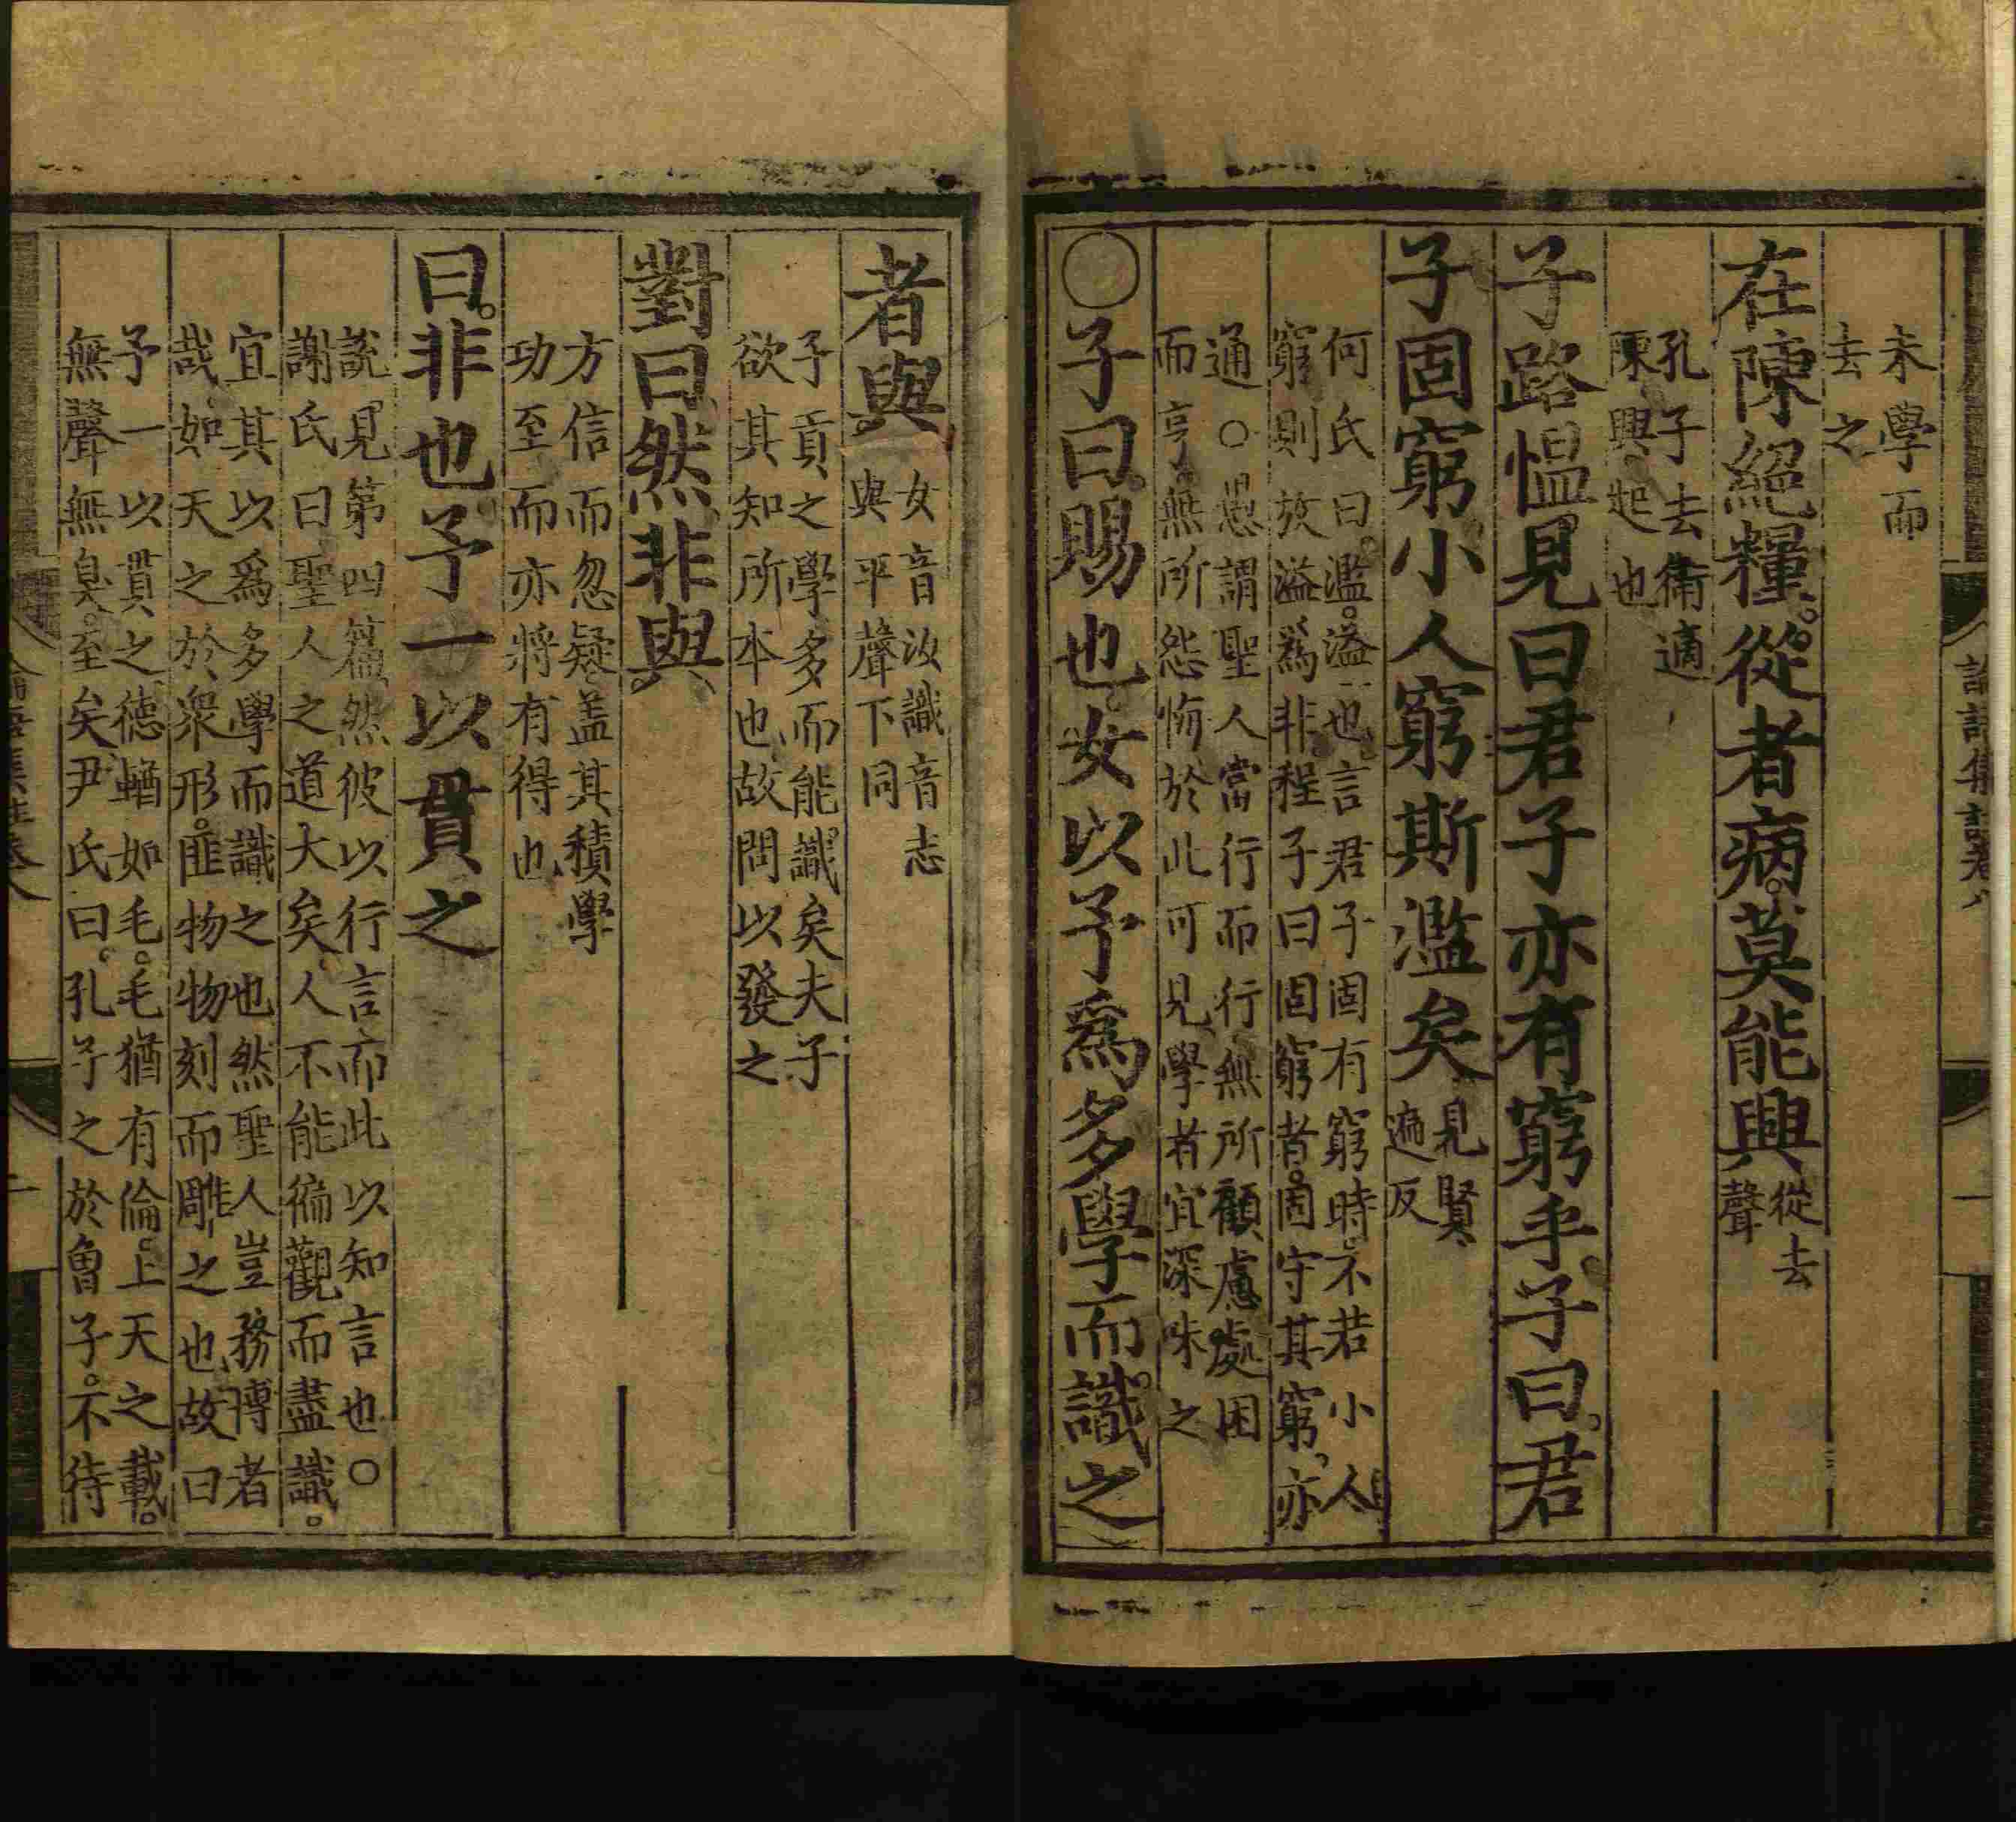 未學而
去之
在陳絕糧。從者病。莫能興
從去
聲
孔子去衛適
陳興起也
子路慍見曰君子亦有窮乎。子曰。君
子固窮小人窮斯濫矣
見賢
遍反
何氏曰。濫。溢也言君子固有窮時。不若小人
窮則放溢爲非。程子曰固窮者。固守其窮。亦
通○愚謂聖人當行而行無所顧慮處困
而亨。無所怨悔於此可見學者宜深味之
○子曰。賜也。女以予爲多學而識。之
者與
女音汝識音志
與平聲下同
子貢之學多而能識矣夫子
欲其知所本也故問以發之
對曰然非與
方信而忽疑蓋其積學
功至而亦將有得也
曰。非也予一以貫之
說見第四篇然彼以行言而此以知言也○
謝氏曰聖人之道大矣人不能徧觀而盡識。
宜其以爲多學而識之也然聖人豈務博者
哉。如天之於衆形。匪物物刻而雕之也故曰
予一以貫之德輶如毛。毛猶有倫。上天之載。
無聲無臭。至矣尹氏曰。孔子之於曾子。不待
論語集註卷八
二